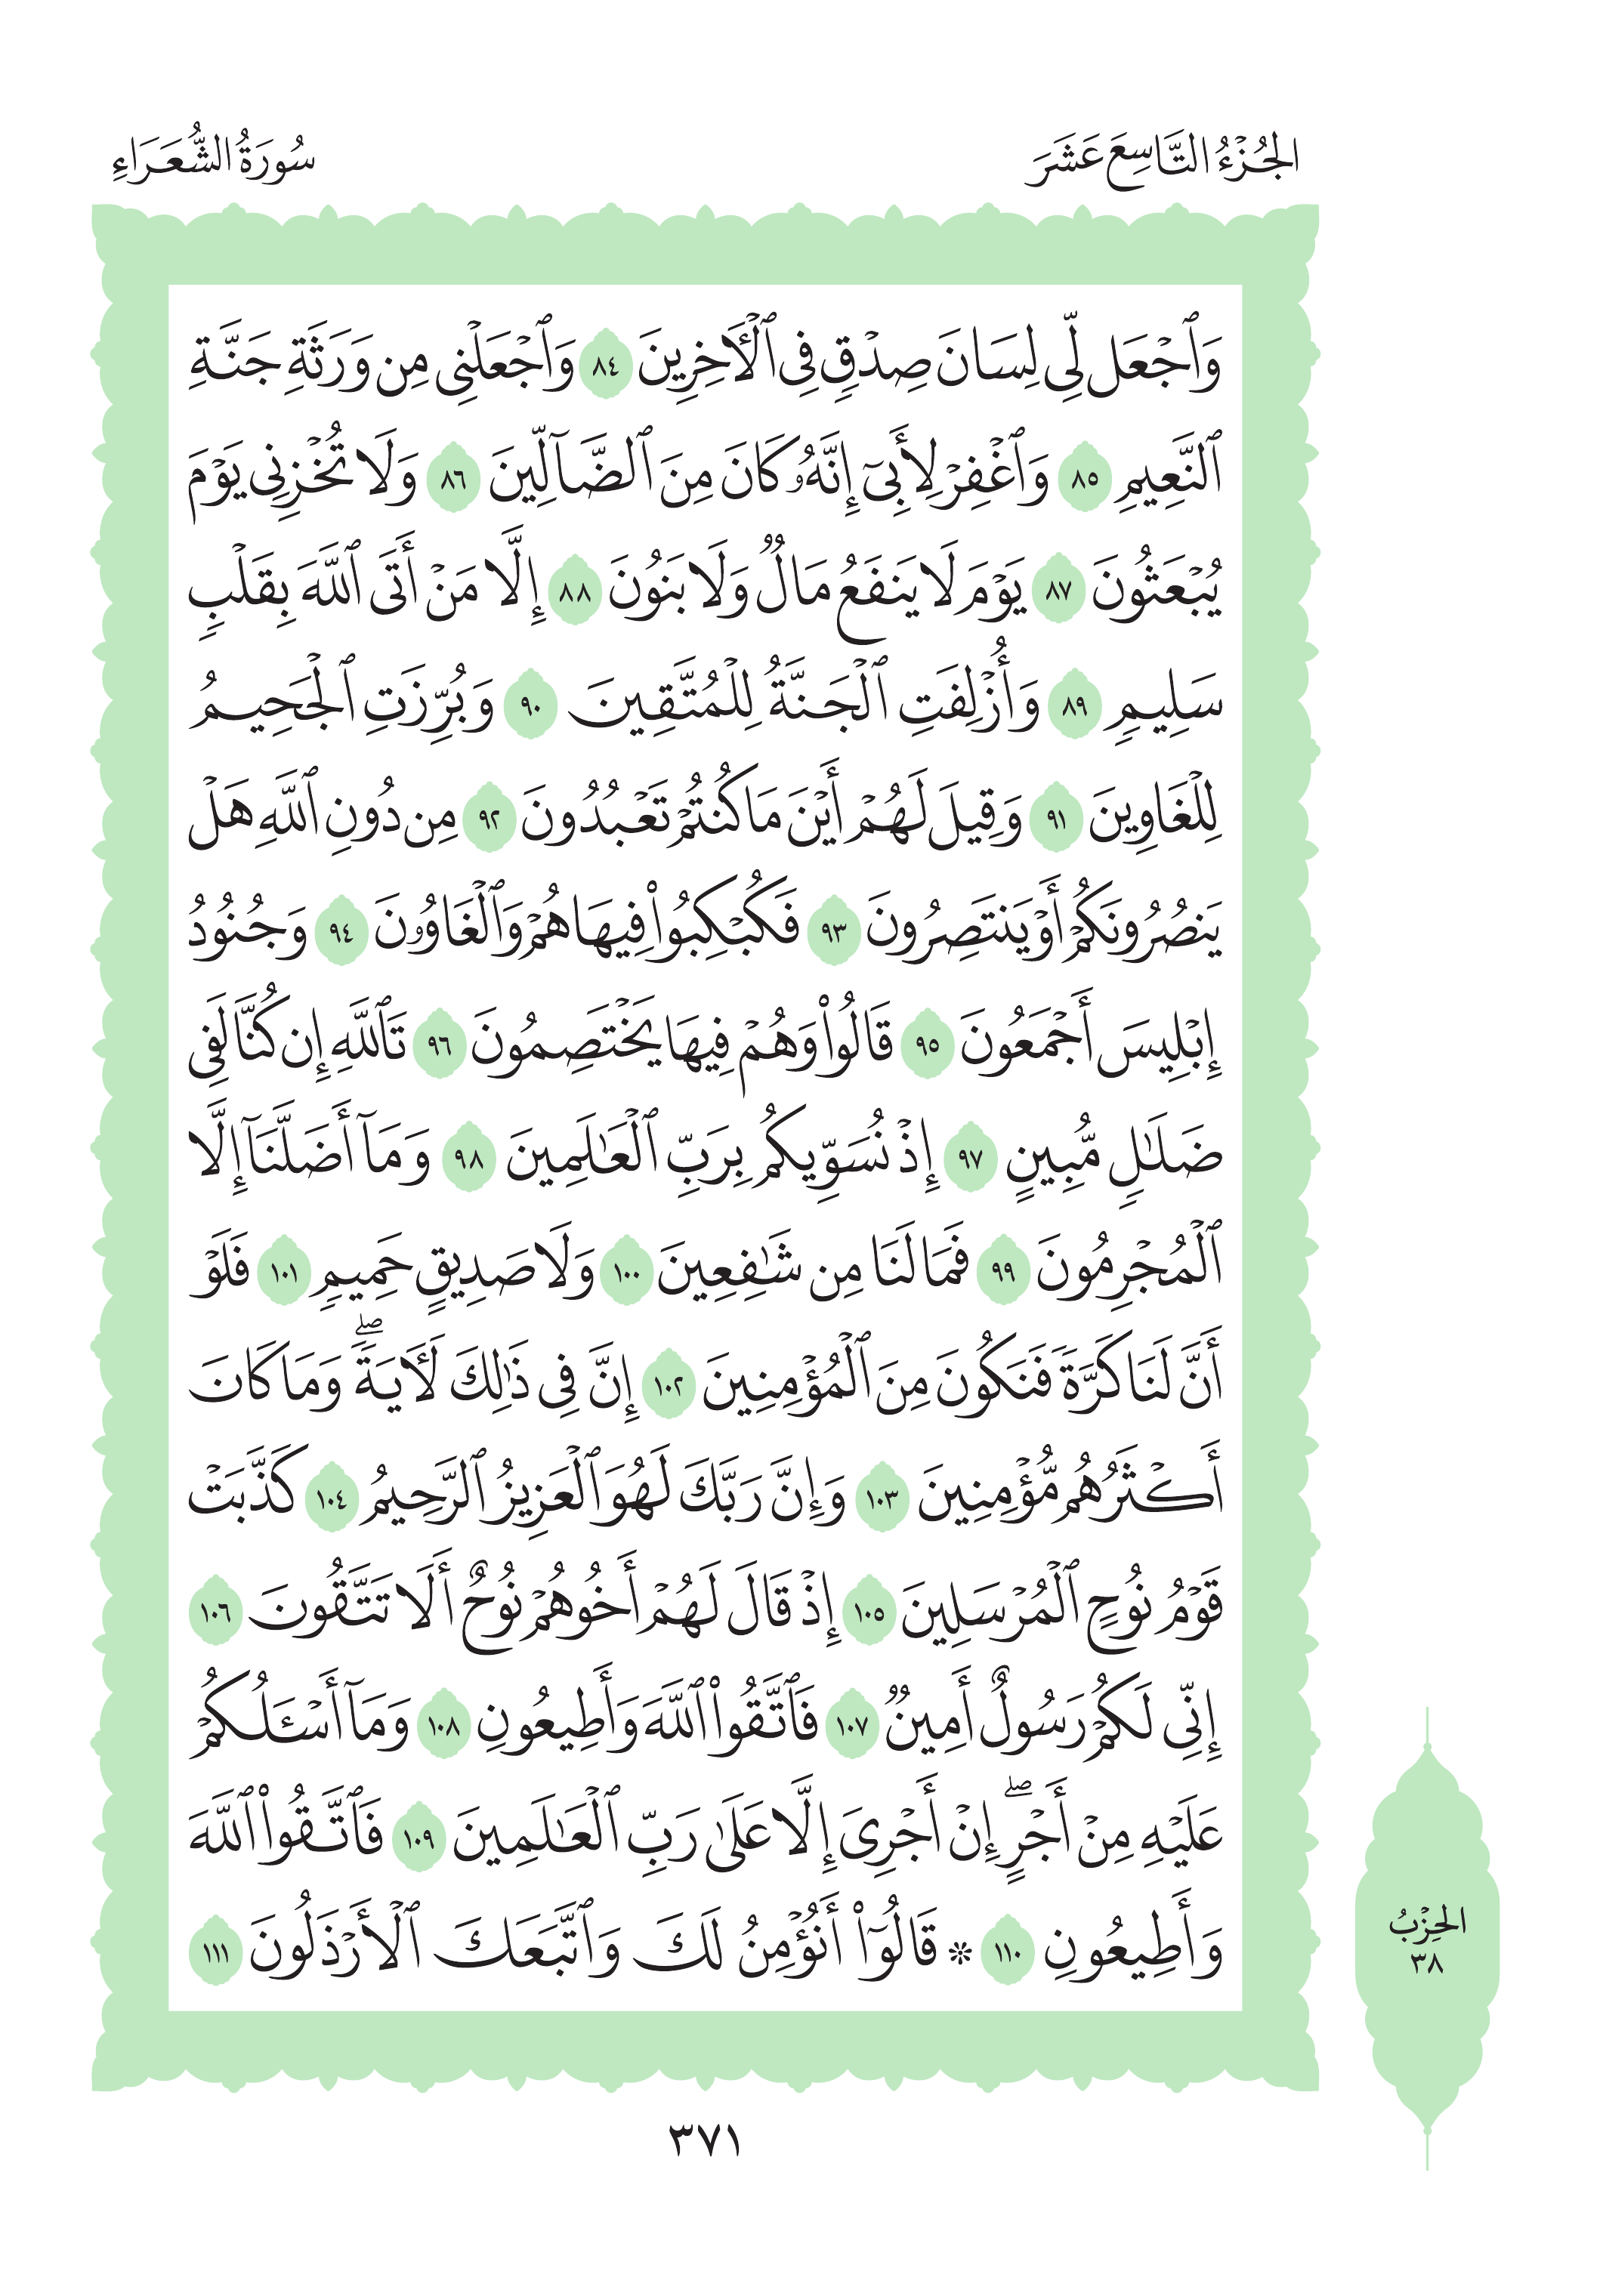 الجُزْءُ التَّاسِعَ عَشَرَ
سُورَةُ الشُّعَرَاءِ
وَٱجْعَل لِّى لِسَانَ صِدْقٍ فِى ٱلْـَٔاخِرِينَ ٨٤ وَٱجْعَلْنِى مِن وَرَثَةِ جَنَّةِ
ٱلنَّعِيمِ ٨٥ وَٱغْفِرْ لِأَبِىٓ إِنَّهُۥ كَانَ مِنَ ٱلضَّآلِّينَ ٨٦ وَلَا تُخْزِنِى يَوْمَ
يُبْعَثُونَ ٨٧ يَوْمَ لَا يَنفَعُ مَالٌ وَلَا بَنُونَ ٨٨ إِلَّا مَنْ أَتَى ٱللَّهَ بِقَلْبٍ
سَلِيمٍ ٨٩ وَأُزْلِفَتِ ٱلْجَنَّةُ لِلْمُتَّقِينَ ٩٠ وَبُرِّزَتِ ٱلْجَحِيمُ
لِلْغَاوِينَ ٩١ وَقِيلَ لَهُمْ أَيْنَ مَا كُنتُمْ تَعْبُدُونَ ٩٢ مِن دُونِ ٱللَّهِ هَلْ
يَنصُرُونَكُمْ أَوْ يَنتَصِرُونَ ٩٣ فَكُبْكِبُوا۟ فِيهَا هُمْ وَٱلْغَاوُۥنَ ٩٤ وَجُنُودُ
إِبْلِيسَ أَجْمَعُونَ ٩٥ قَالُوا۟ وَهُمْ فِيهَا يَخْتَصِمُونَ ٩٦ تَٱللَّهِ إِن كُنَّا لَفِى
ضَلَـٰلٍ مُّبِينٍ ٩٧ إِذْ نُسَوِّيكُم بِرَبِّ ٱلْعَـٰلَمِينَ ٩٨ وَمَآ أَضَلَّنَآ إِلَّا
ٱلْمُجْرِمُونَ ٩٩ فَمَا لَنَا مِن شَـٰفِعِينَ ١٠٠ وَلَا صَدِيقٍ حَمِيمٍ ١٠١ فَلَوْ
أَنَّ لَنَا كَرَّةً فَنَكُونَ مِنَ ٱلْمُؤْمِنِينَ ١٠٢ إِنَّ فِى ذَٰلِكَ لَـَٔايَةًۖ وَمَا كَانَ
أَكْثَرُهُم مُّؤْمِنِينَ ١٠٣ وَإِنَّ رَبَّكَ لَهُوَ ٱلْعَزِيزُ ٱلرَّحِيمُ ١٠٤ كَذَّبَتْ
قَوْمُ نُوحٍ ٱلْمُرْسَلِينَ ١٠٥ إِذْ قَالَ لَهُمْ أَخُوهُمْ نُوحٌ أَلَا تَتَّقُونَ ١٠٦
إِنِّى لَكُمْ رَسُولٌ أَمِينٌ ١٠٧ فَٱتَّقُوا۟ ٱللَّهَ وَأَطِيعُونِ ١٠٨ وَمَآ أَسْـَٔلُكُمْ
عَلَيْهِ مِنْ أَجْرٍۖ إِنْ أَجْرِىَ إِلَّا عَلَىٰ رَبِّ ٱلْعَـٰلَمِينَ ١٠٩ فَٱتَّقُوا۟ ٱللَّهَ
وَأَطِيعُونِ ١١٠ ۞ قَالُوٓا۟ أَنُؤْمِنُ لَكَ وَٱتَّبَعَكَ ٱلْأَرْذَلُونَ ١١١
الحِزْبُ
٣٨
٣٧١